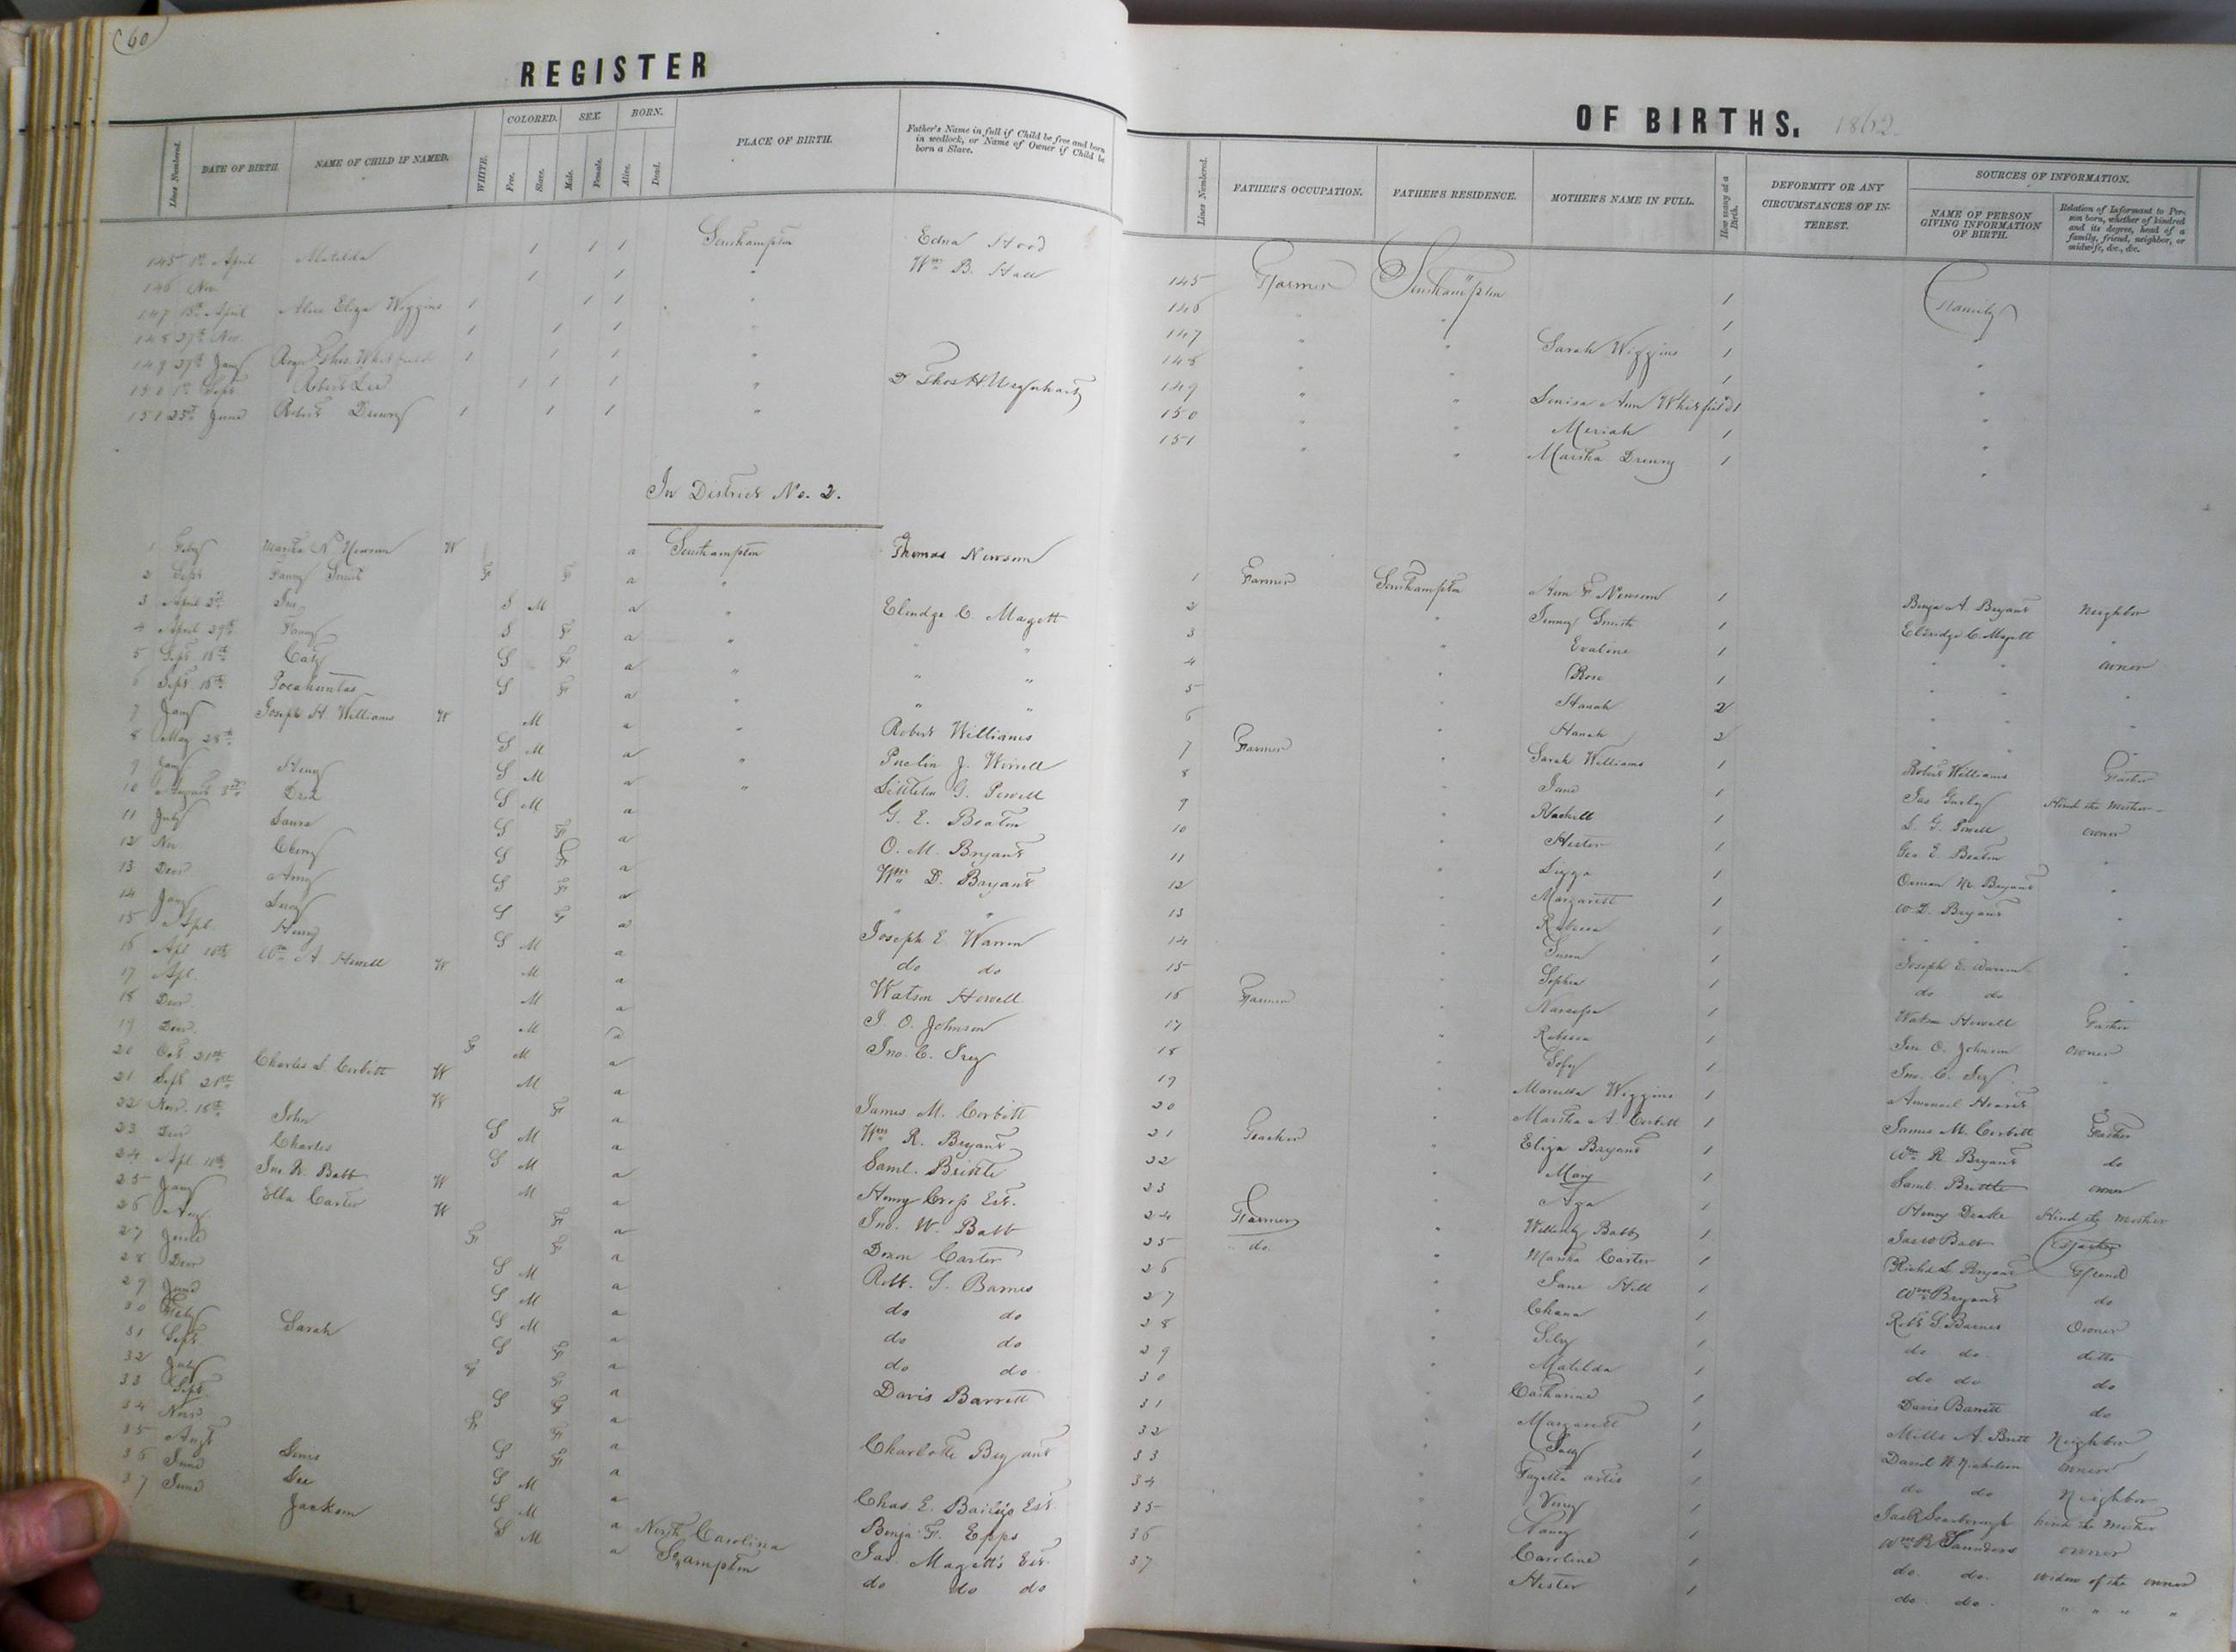 60
REGISTER
Lines Numbered. DATE OF BIRTH. NAME OF CHILD IF NAMED. WHITE. COLORED. Free. Slave. SEX. Male. Female. BORN. Alive. Dead. PLACE OF BIRTH. Father's Name in full if Child be free and born in wedlock, or Name of Owner if Child be born a Slave.
145 1st April Matilda 1 1 1 Southampton Edna Hood
146 Nov 1 1 " Wm B. Hall
147 15th April Alice Eliza Wiggins 1 1 1 "
148 27th Nov. 1 1 1 "
149 27th Jany Thos. Whitfield 1 1 1 "
150 1st Sept Robert Lee 1 1 1 " D Thos H Urquhart
151 25th June Robert Drewry 1 1 1 "
In District No. 2.
1 Feby Martha N Newsom W a Southampton Thomas Newsom
2 Sept Fanny Smith F F a "
3 April 2d Jno S M a " Elridge C Magett
4 April 29th Fanny S F a " " "
5 Sept 18th Caty S F a " " "
6 Sept 18th Pocahuntas S F a " " "
7 Jany Joseph H. Williams W M a " Robert Williams
8 May 28th S M a "
9 Jany Henry S M a " Littleton G. Powell
10 August 8th S M a G. E. Beaton
11 July Laura S F a O. M. Bryant
12 Nov S F a Wm D. Bryant
13 Decr Amy S F a " "
14 Jany Lucy S F a Joseph E. Warren
15 Apl. Henry S M a do do
16 Apl 10th Wm A Howell W M a Watson Howell
17 Apl. M a J. O. Johnson
18 Decr M a Jno. C.
19 Decr. F M a
20 Oct 21st Charles S. Corbitt W M a James M. Corbitt
21 Sept 21st W F a Wm R. Bryant
22 Nov. 18th John S M a Saml. Brittle
23 Decr Charles S M a Henry Crop Est.
24 Apl 10th Jno. W. Babb W M a Jno. W. Babb
25 Jany Ella Carter W F a Dixon Carter
26 Aug F F a
27 June S M a Robt. S. Barnes
28 Decr S M a do do
29 June S M a do do
30 Feby Sarah S F a do do
31 Sept. F F a Davis Barrett
32 July S F a
33 Sept F F a Charlotte Bryant
34 Novr S F a
35 Augt Lewis S M a Chas E. Bailey's Est.
36 June Lee S M a North Carolina Benja. F. Epps
37 June Jackson S M a Shampton Jas. Magett's Est.
do do do
OF BIRTHS. 1862.
Lines Numbered. FATHER'S OCCUPATION. FATHER'S RESIDENCE. MOTHER'S NAME IN FULL. How many at a Birth. DEFORMITY OR ANY CIRCUMSTANCES OF INTEREST. SOURCES OF INFORMATION. NAME OF PERSON GIVING INFORMATION OF BIRTH. Relation of Informant to Person born, whether of kindred and its degree, head of a family, friend, neighbor, or midwife, &c., &c.
145 Farmer Southampton 1 Family
146 " " 1 "
147 " " Sarah Wiggins 1 "
148 " " 1 "
149 " " Louisa Ann Whitfield 1 "
150 " " Meriah 1 "
151 " " Martha Drewry 1 "
1 Farmer Southampton Ann F Newsom 1 Benja A. Bryant Neighbor
2 " Jenny Smith 1 Eldridge C. Magett "
3 " Evaline 1 " " owner
4 " Rose 1 " " "
5 " Hanah 2 " " "
6 " Hanah 2 " " "
7 Farmer " Sarah Williams 1 Robert Williams Father
8 " Jane 1 Jas Gurley Hired the Mother
9 " Rachell 1 L. G. Powell owner
10 " Hester 1 Geo E. Beaton "
11 " 1 Orman M. Bryant "
12 " Margarett 1 W. D. Bryant "
13 " Rebecca 1 " " "
14 " Susan 1 Joseph E. Warren "
15 " Sophia 1 do do "
16 Farmer " 1 Watson Howell Father
17 " Rebecca 1 Jno O. Johnson owner
18 " 1 Jno. C. "
19 " Wiggins 1
20 " Martha A. Corbitt 1 James M. Corbitt Father
21 Teacher " Eliza Bryant 1 Wm R Bryant do
22 " Mary 1 Saml. Brittle owner
23 " 1 Henry Drake Hired the Mother
24 Farmer " Babb 1 Babb Father
25 do. " Martha Carter 1 Richd S. Bryant Friend
26 " Jane Hill 1 Wm Bryant do
27 " Chana 1 Robt S. Barnes Owner
28 " Silvy 1 do do ditto
29 " Matilda 1 do do do
30 " Catharine 1 Davis Barrett do
31 " Margarett 1 Mills A. Britt Neighbor
32 " 1 David W Nicholson owner
33 " artis 1 do do Neighbor
34 " 1 Scarborough hired the Mother
35 " Nancy 1 Wm B Saunders owner
36 " Caroline 1 do. do. widow of the owner
37 " Hester 1 do. do. " " " "